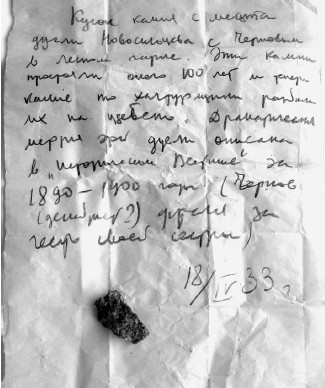 Кусок камня с места
дуэли Новосильцева с Черновым
в лесном парке. Эти камни
простояли около 100 лет и теперь
какие то халтурщики разбили
их на щебень. Драматическая
дуэли описана
в „Историческом Вестнике" за
1890–1900 годы (Чернов
(декабрист?) дрался за
честь своей сестры)
18/IV 33 г.